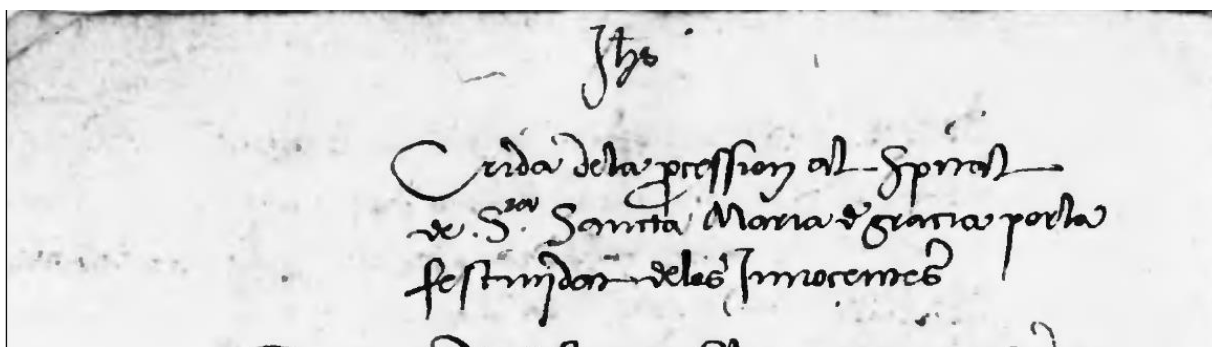 Jhs
Crida dela pcession al Spital
de .Sra. Sancta Maria de gracia por la
festiujdat delos Jnnocentes